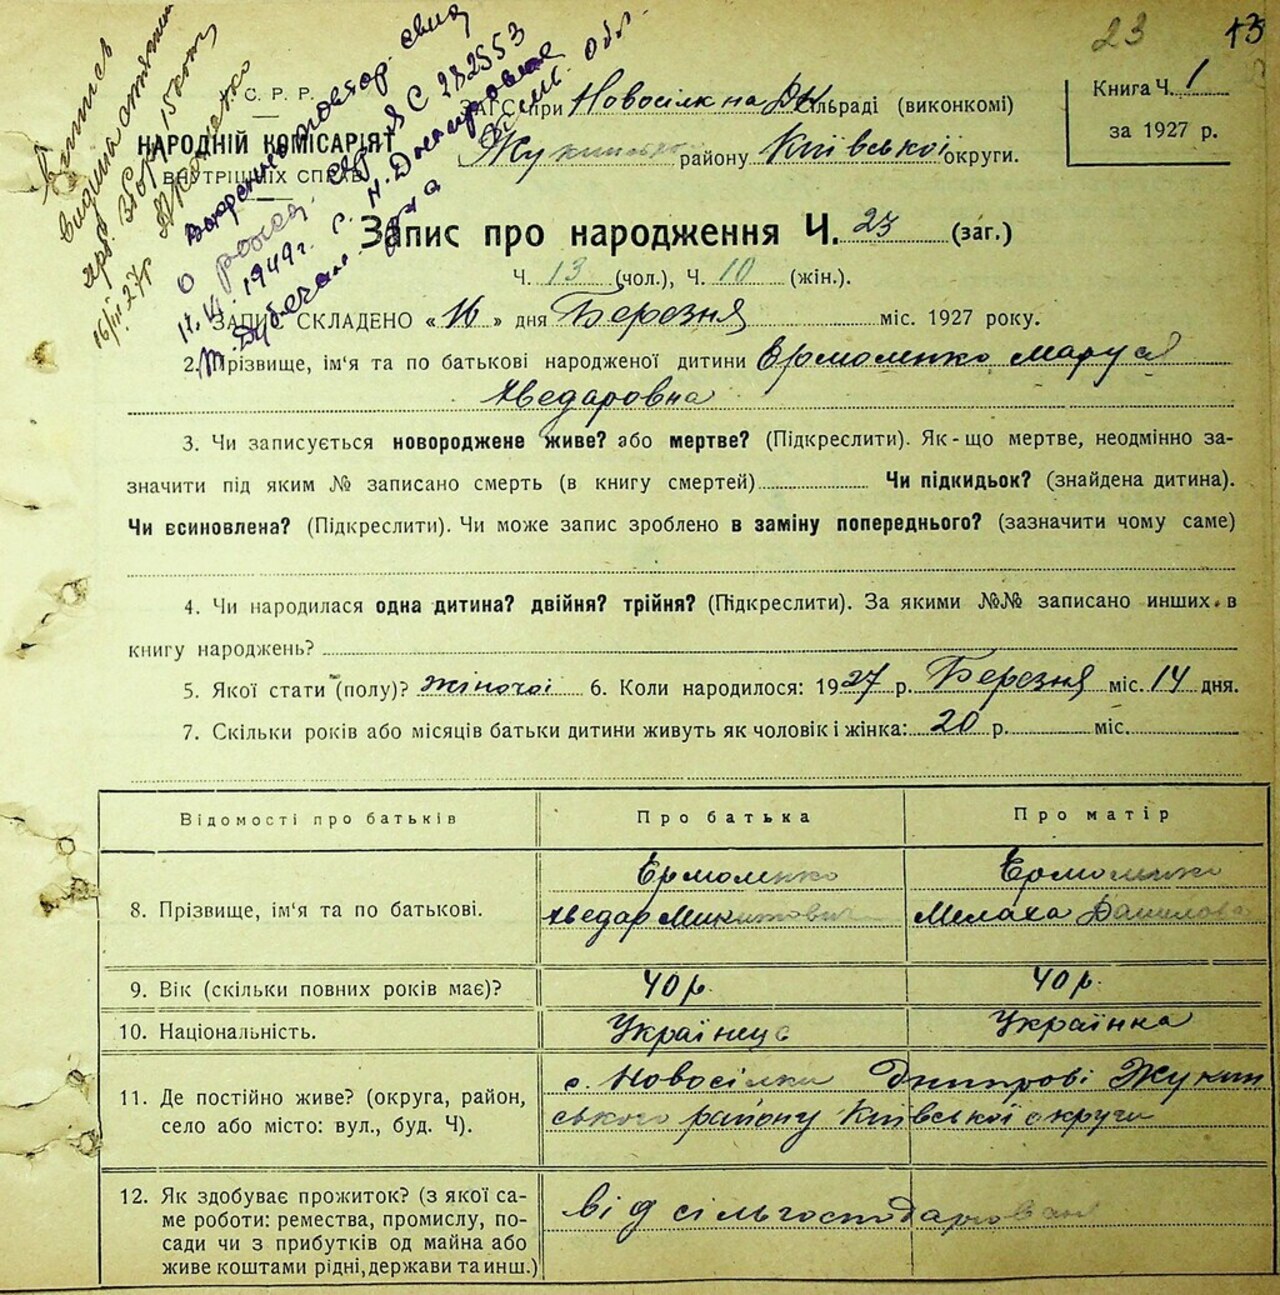 23 13
Витись
видана
16/III 27 р
Выдано повтор. свид
о рожд. ЯС 282553
1949 г. с. Н. Дніпровские
С. Р. Р.
НАРОДНІЙ КОМІСАРІЯТ
ВНУТРІШНІХ СПРАВ
ЗАГС при Новосілк на Дн. сільраді (виконкомі)
Жукинсько району Київської округи.
Книга Ч. 1
за 1927 р.
Запис про народження Ч. 23 (заг.)
Ч. 13 (чол.), Ч. 10 (жін.).
ЗАПИС СКЛАДЕНО «16» дня Березня міс. 1927 року.
2. Прізвище, ім'я та по батькові народженої дитини Ермоленко Маруся
Хведаровна
3. Чи записується новороджене живе? або мертве? (Підкреслити). Як-що мертве, неодмінно за-
значити під яким № записано смерть (в книгу смертей) Чи підкидьок? (знайдена дитина).
Чи всиновлена? (Підкреслити). Чи може запис зроблено в заміну попереднього? (зазначити чому саме)
4. Чи народилася одна дитина? двійня? трійня? (Підкреслити). За якими №№ записано инших в
книгу народжень?
5. Якої стати (полу)? жіночої 6. Коли народилося: 1927 р. Березня міс. 14 дня.
7. Скільки років або місяців батьки дитини живуть як чоловік і жінка: 20 р. міс.
Відомості про батьків Про батька Про матір
8. Прізвище, ім'я та по батькові. Ермоленко Хведар Микитович Ермоленко Мелаха Данилова
9. Вік (скільки повних років має)? 40 р. 40 р.
10. Національність. Українець Українка
11. Де постійно живе? (округа, район,
село або місто: вул., буд. Ч).
с. Новосілки Днипрові Жукин
ського району Київської округи
12. Як здобуває прожиток? (з якої са-
ме роботи: ремества, промислу, по-
сади чи з прибутків од майна або
живе коштами рідні, держави та инш.)
від сільгосподарюван